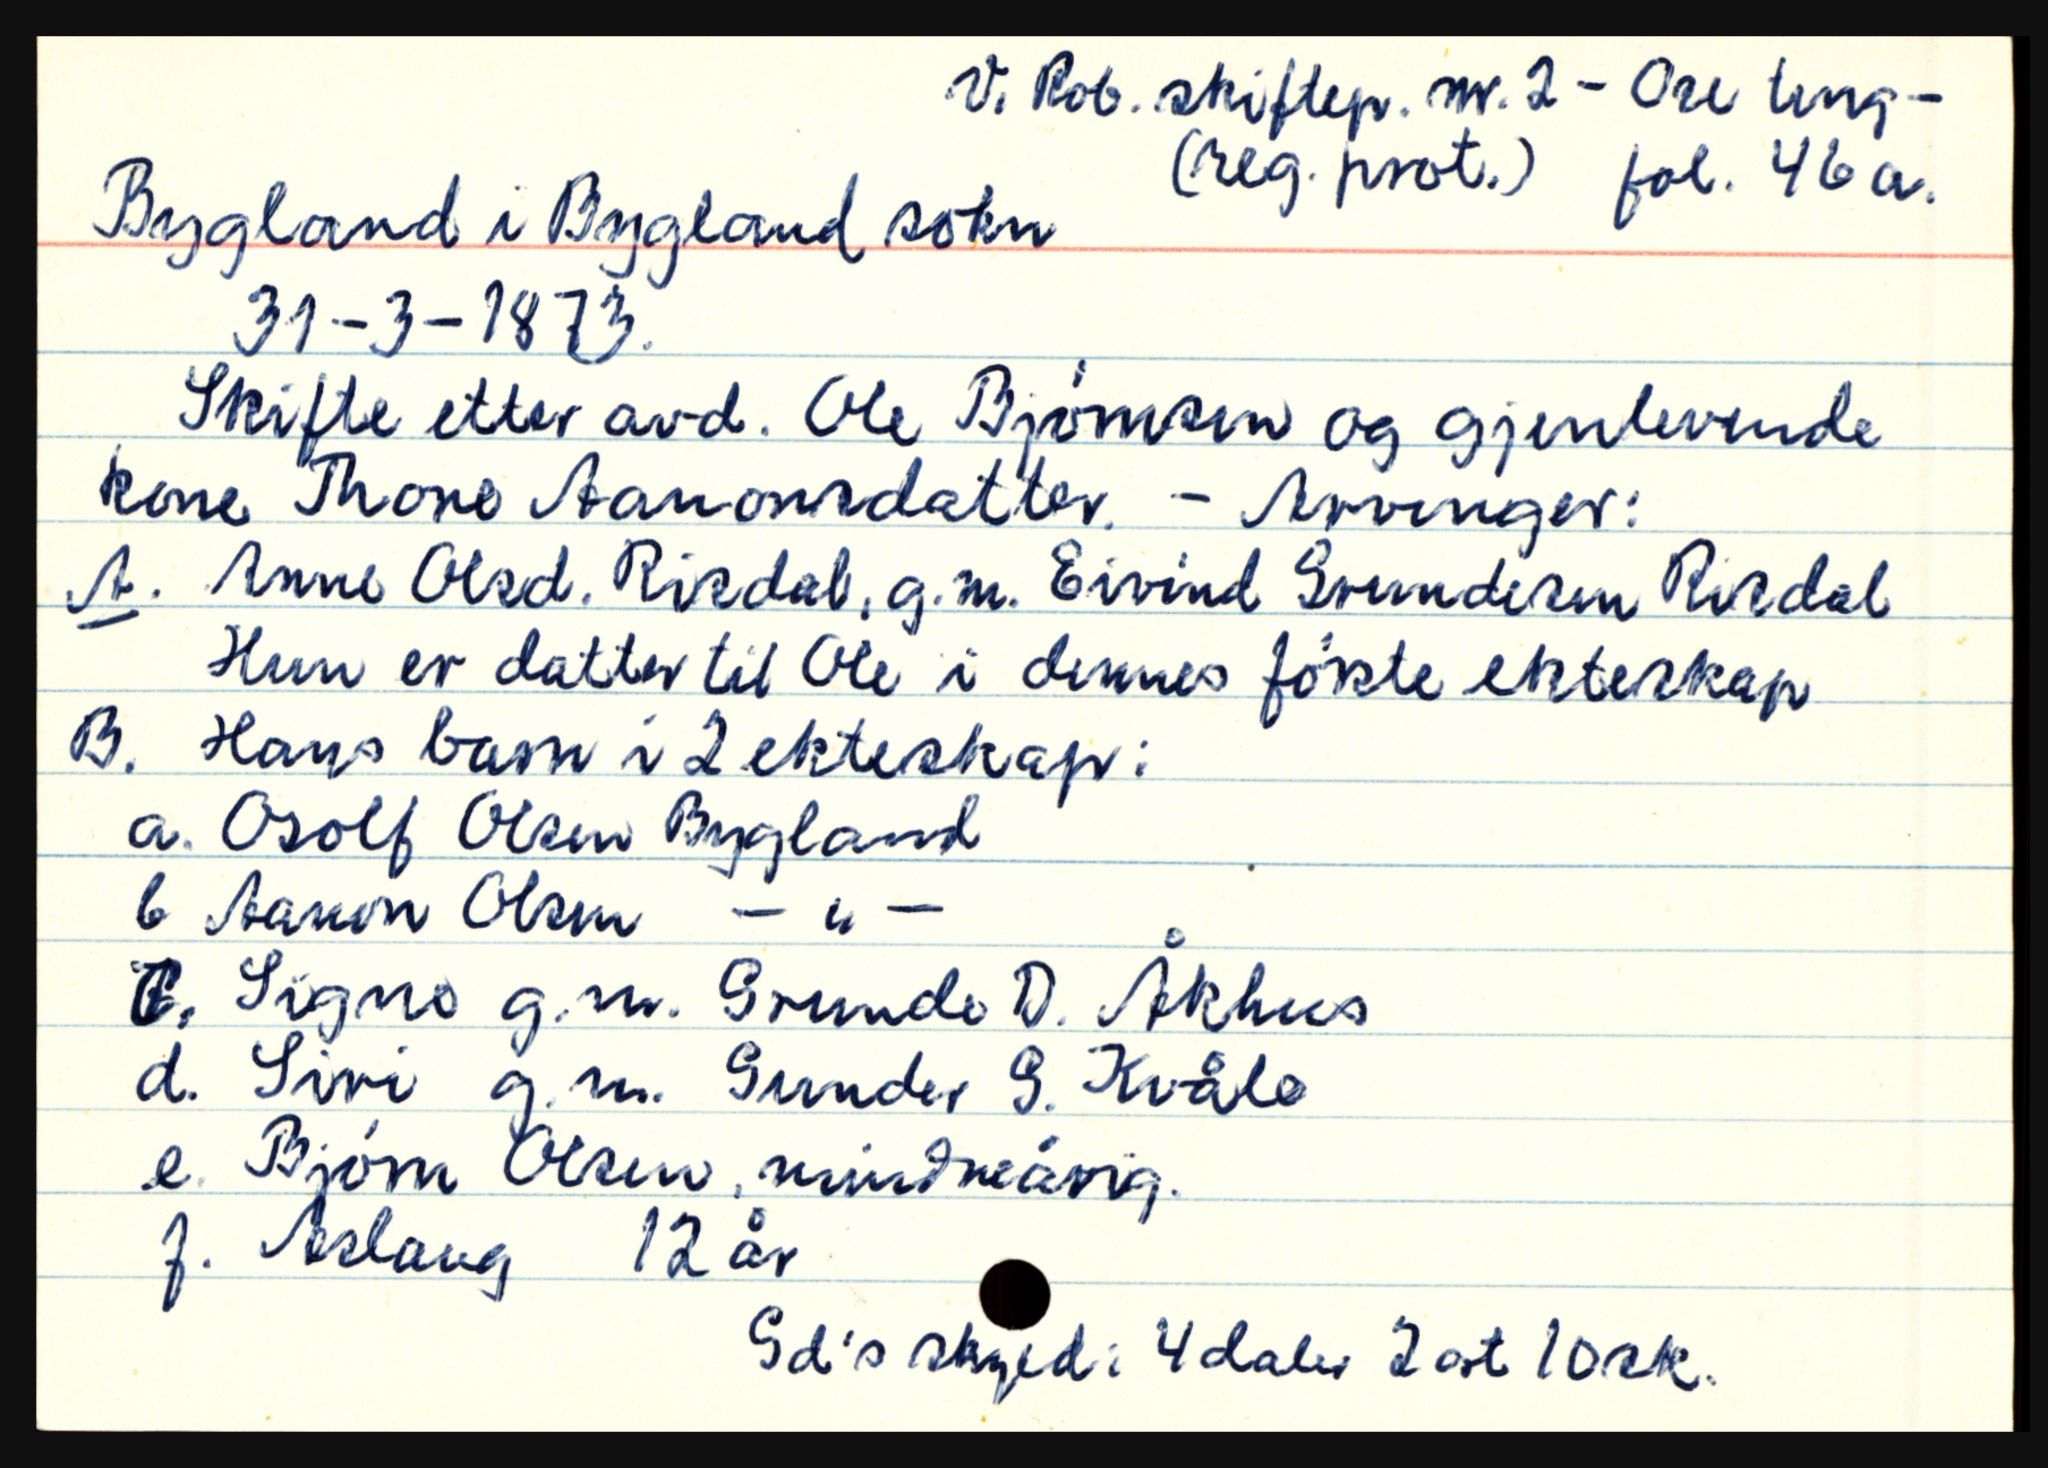 V. Rob. skiftepr. nr. 2 - Ose ting -
(reg. prot.) fol. 46a.
Bygland i Bygland sokn
31-3-1873.
Skifte etter avd. Ole Bjørnsen og gjenlevende
kone Thore Aanonsdatter. - Arvinger:
A. Anne Olsd. Risdal, g.m. Eivind Grundesen Risdal
Hun er datter til Ole i dennes føste ekteskap
B. Hans barn i 2 ekteskap:
a. Osolf Olsen Bygland
b Aanon Olsen - " -
C. Signe g.m. Grunde D. Åkhus
d. Siri g.m. Gunder G. Kvåle
e. Bjørn Olsen, mindreårig.
f. Aslaug 12 år
Gd's skyld: 4 daler 2 ort 10 sk.